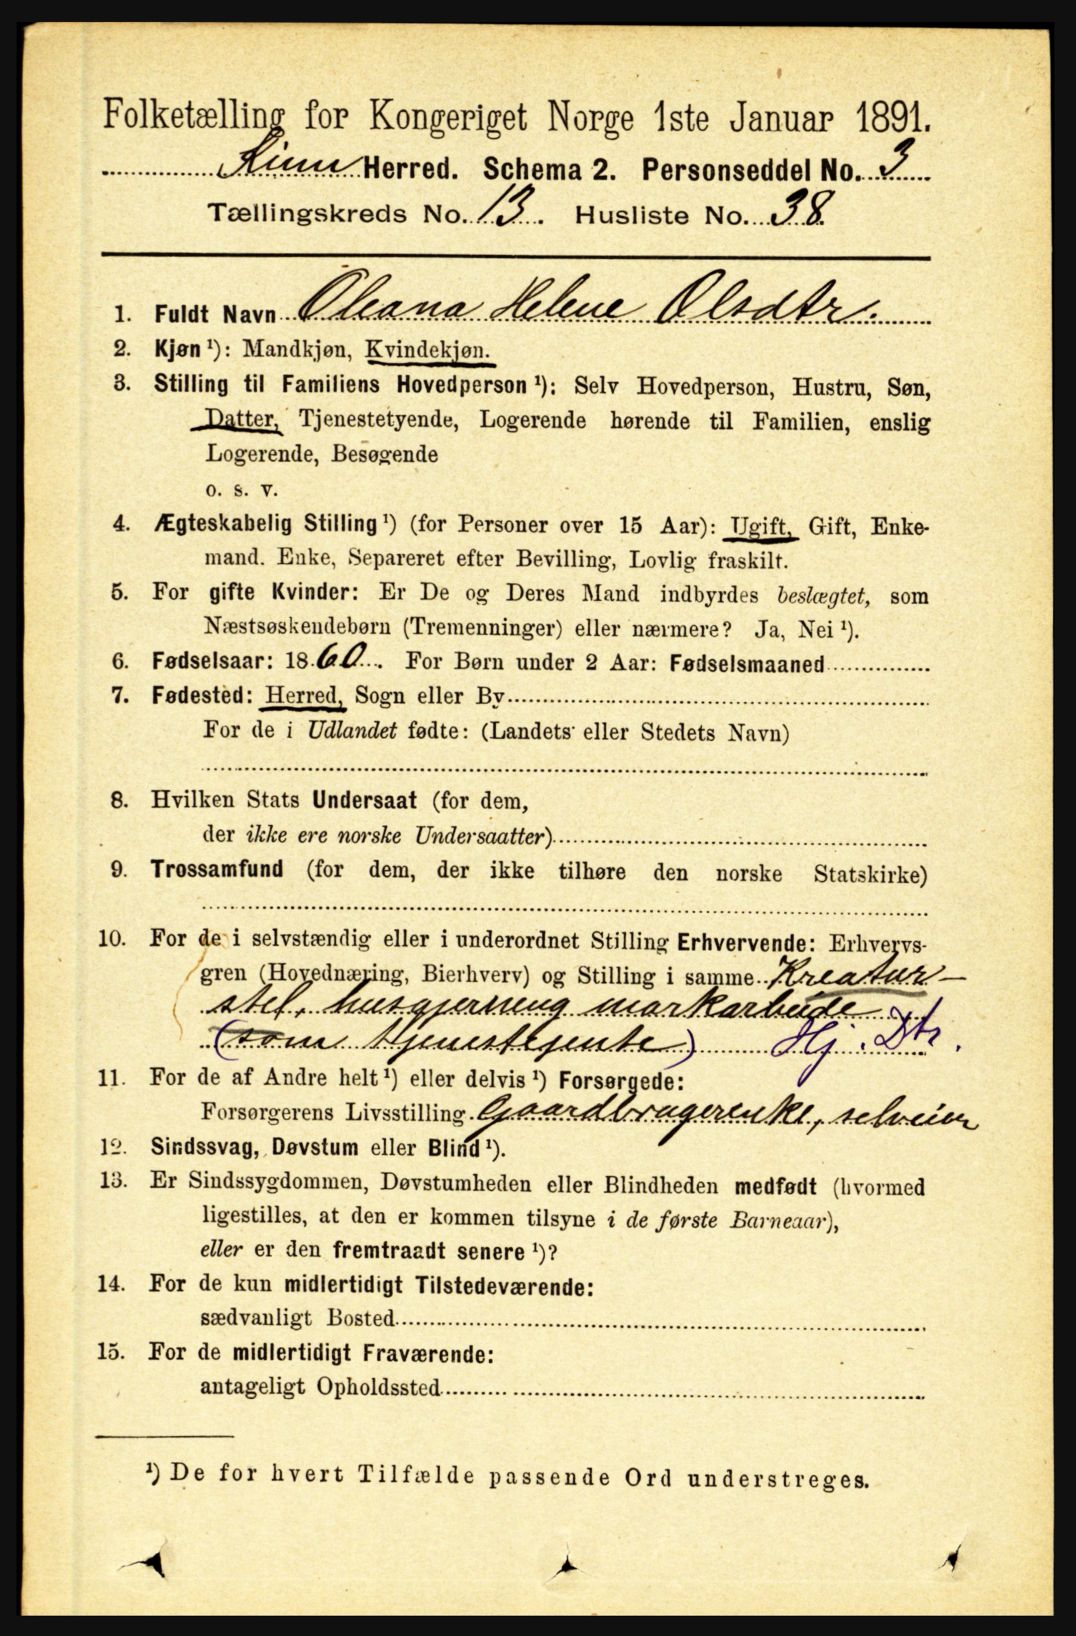 Folketælling for Kongeriget Norge 1ste Januar 1891.
Kinn Herred. Schema 2. Personseddel No. 3
Tællingskreds No. 13. Husliste No. 38.
1. Fuldt Navn Oleana Helene Olsdtr.
2. Kjøn ¹): Mandkjøn, Kvindekjøn.
3. Stilling til Familiens Hovedperson ¹): Selv Hovedperson, Hustru, Søn,
Datter, Tjenestetyende, Logerende hørende til Familien, enslig
Logerende, Besøgende
o. s. v.
4. Ægteskabelig Stilling ¹) (for Personer over 15 Aar): Ugift, Gift, Enke-
mand. Enke, Separeret efter Bevilling, Lovlig fraskilt.
5. For gifte Kvinder: Er De og Deres Mand indbyrdes beslægtet, som
Næstsøskendebørn (Tremenninger) eller nærmere? Ja, Nei ¹).
6. Fødselsaar: 1860. For Børn under 2 Aar: Fødselsmaaned
7. Fødested: Herred, Sogn eller By
For de i Udlandet fødte: (Landets eller Stedets Navn)
8. Hvilken Stats Undersaat (for dem,
der ikke ere norske Undersaatter)
9. Trossamfund (for dem, der ikke tilhøre den norske Statskirke)
10. For de i selvstændig eller i underordnet Stilling Erhvervende: Erhvervs-
gren (Hovednæring, Bierhverv) og Stilling i samme Kreatur-
stel, husgjerning markarbeide
(som tjenestejente) Hj. Dtr.
11. For de af Andre helt ¹) eller delvis ¹) Forsørgede:
Forsørgerens Livsstilling Gaardbrugerenke, selveier
12. Sindssvag, Døvstum eller Blind ¹).
13. Er Sindssygdommen, Døvstumheden eller Blindheden medfødt (hvormed
ligestilles, at den er kommen tilsyne i de første Barneaar),
eller er den fremtraadt senere ¹)?
14. For de kun midlertidigt Tilstedeværende:
sædvanligt Bosted
15. For de midlertidigt Fraværende:
antageligt Opholdssted
¹) De for hvert Tilfælde passende Ord understreges.